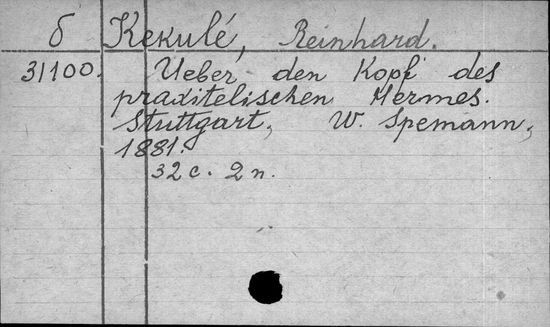 б Kekulé, Reinhard.
31100. Ueber den Kopf des
praxitelischen Hermes.
Stuttgart, W. Spemann,
1881.
32 c. 2 п.